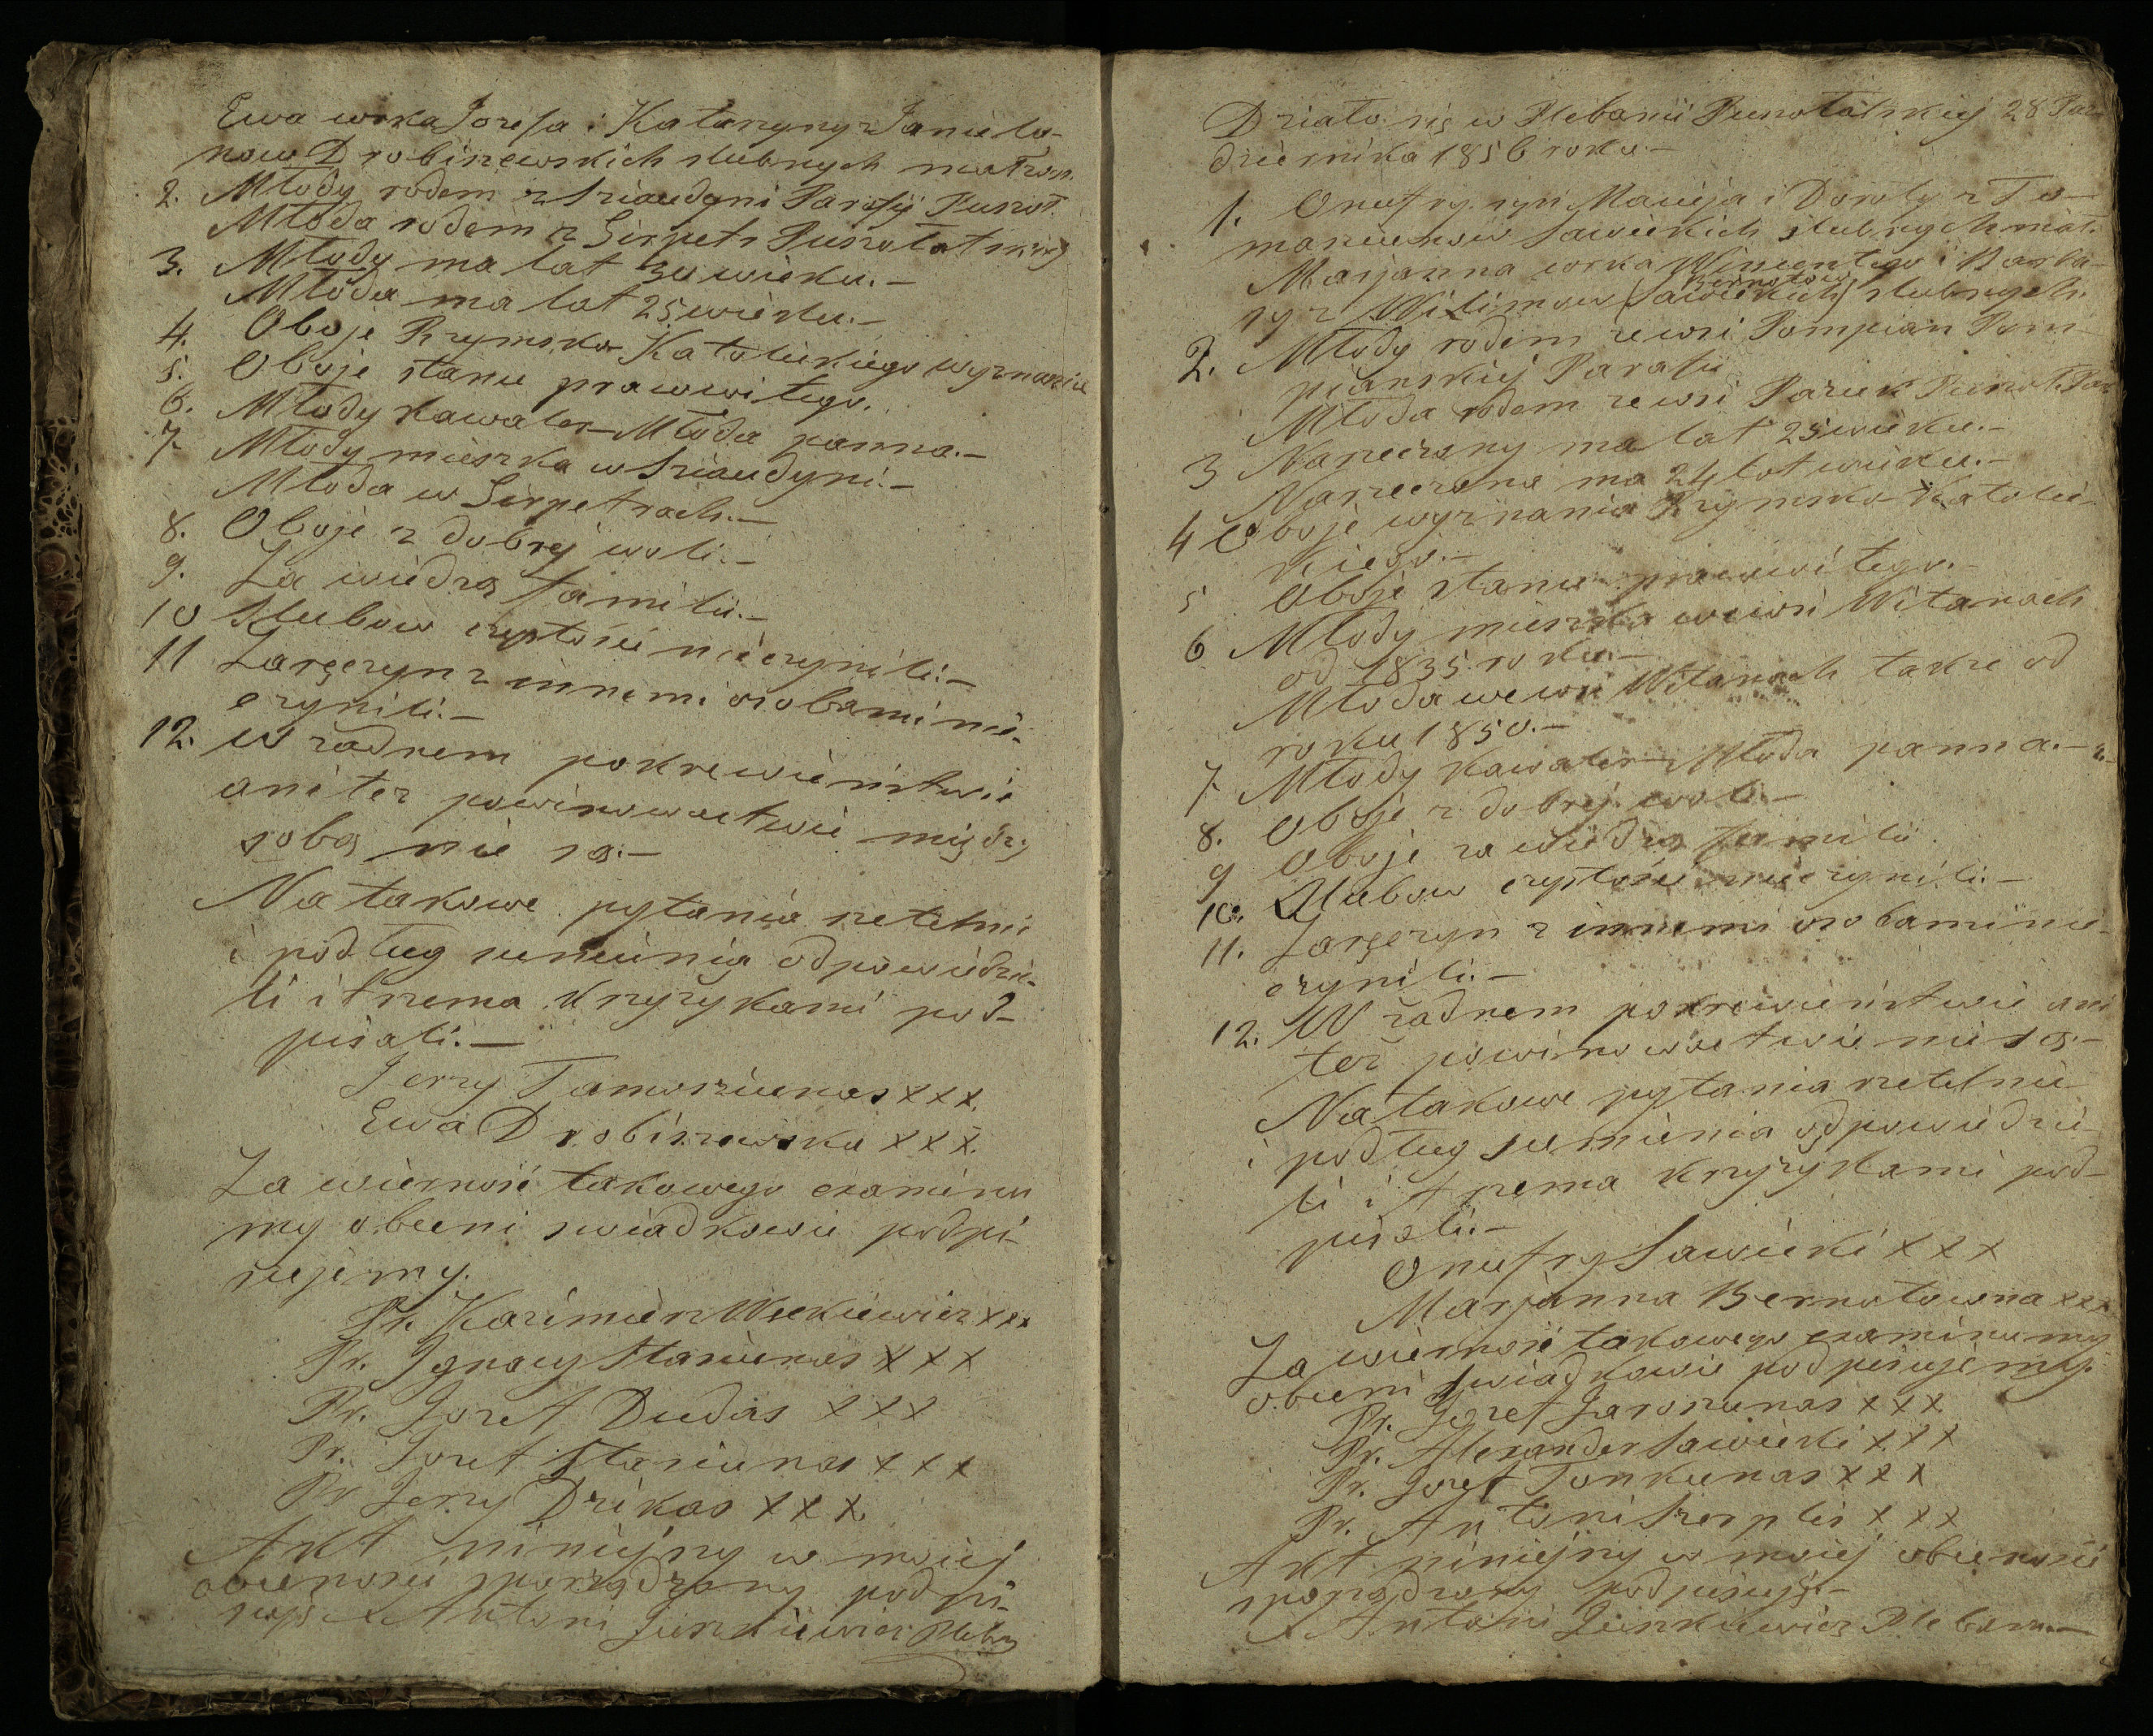 Ewa corka Jozefa i Katarzyny z Danielo-
now Drobiszewskich slubnych małżon.
2. Młody rodem z Sziaudyni Parafij Puszoł.
Młoda rodem z Girpetr Puszołatskiej
3. Młody ma lat 30 wieku.-
Młoda ma lat 25 wieku.-
4. Oboje Rzymsko Katolickiego wyznania
5. Oboje stanu prawowitego.
6. Młody kawaler - Młoda panna.-
7. Młody mieszka w Sziaudyni.-
Młoda w Girpetrach.-
8. Oboje z dobrej woli.-
9. Za wiedzą familii.-
10 Slubow czystości nieczynili.-
11 Zaręczyn z innemi osobami nie-
czynili.-
12. W żadnem pokrewieństwie
ani też powinowactwie między
sobą nie są.-
Na takowe pytania rzetelnie
i podług sumienia odpowiedzie-
li i trzema krzyżykami pod-
pisali.-
Jerzy Tamoszunas xxx.
Ewa Drobiszewska xxx.
Za wierność takowego examinu
my obecni swiadkowie podpi-
sujemy.
Pr. Kazimierz xxx
Pr. Ignacy Staniunas xxx
Pr. Jozef Dudas xxx
Pr. Jozef Staniunas xxx
Pr Jerzy Dzikas xxx.
Akt niniejszy w mojej
obecności sporządzony podpi-
suję X Antoni Jurkiewicz Pleban
Działo się w Plebanii Puszołatskiej 28 Paź-
dziernika 1856 roku.-
1. Onufry syn Macieja i Doroty z To-
maszunow Sawickich slubnych małż.
Marjanna corka Wincentego i Barba-
Bernotow
ry z Wilimow (Sawickich) slubnych.
2. Młody rodem ze wsi Pompian Pom-
pianskiej Parafii
Młoda rodem ze wsi Pazuk Puszoł. Par
3 Narzeczony ma lat 25 wieku.-
Narzeczona ma 24 lat wieku.-
4 Oboje wyznania Rzymsko-Katolic-
kiego.-
5 Oboje stanu prawowitego.-
6 Młody mieszka we wsi Witanach
od 1835 roku.-
Młoda we wsi Witanach także od
roku 1850.-
7. Młody kawaler - Młoda panna.-
8. Oboje z dobrej woli.-
9 Oboje za wiedzą familii.
10. Slubow czystości nieczynili.-
11. Zaręczyn z innemi osobami nie-
czynili.-
12. W żadnem pokrewieństwie ani
też powinowactwie nie są.-
Na takowe pytania rzetelnie
i podług sumienia odpowiedzie-
li i trzema krzyżykami pod-
pisali.-
Onufry Sawicki xxx
Marjanna Bernotowna xxx
Za wierność takowego examinu my
obecni swiadkowie podpisujemy.
Pr. Jozef xxx
Pr. Alexander Sawicki xxx
Pr. Jozef Tonkunas xxx
Pr. Antoni xxx
Akt niniejszy w mojej obecności
sporządzony podpisuję.-
X Antoni Jurkiewicz Pleban.-